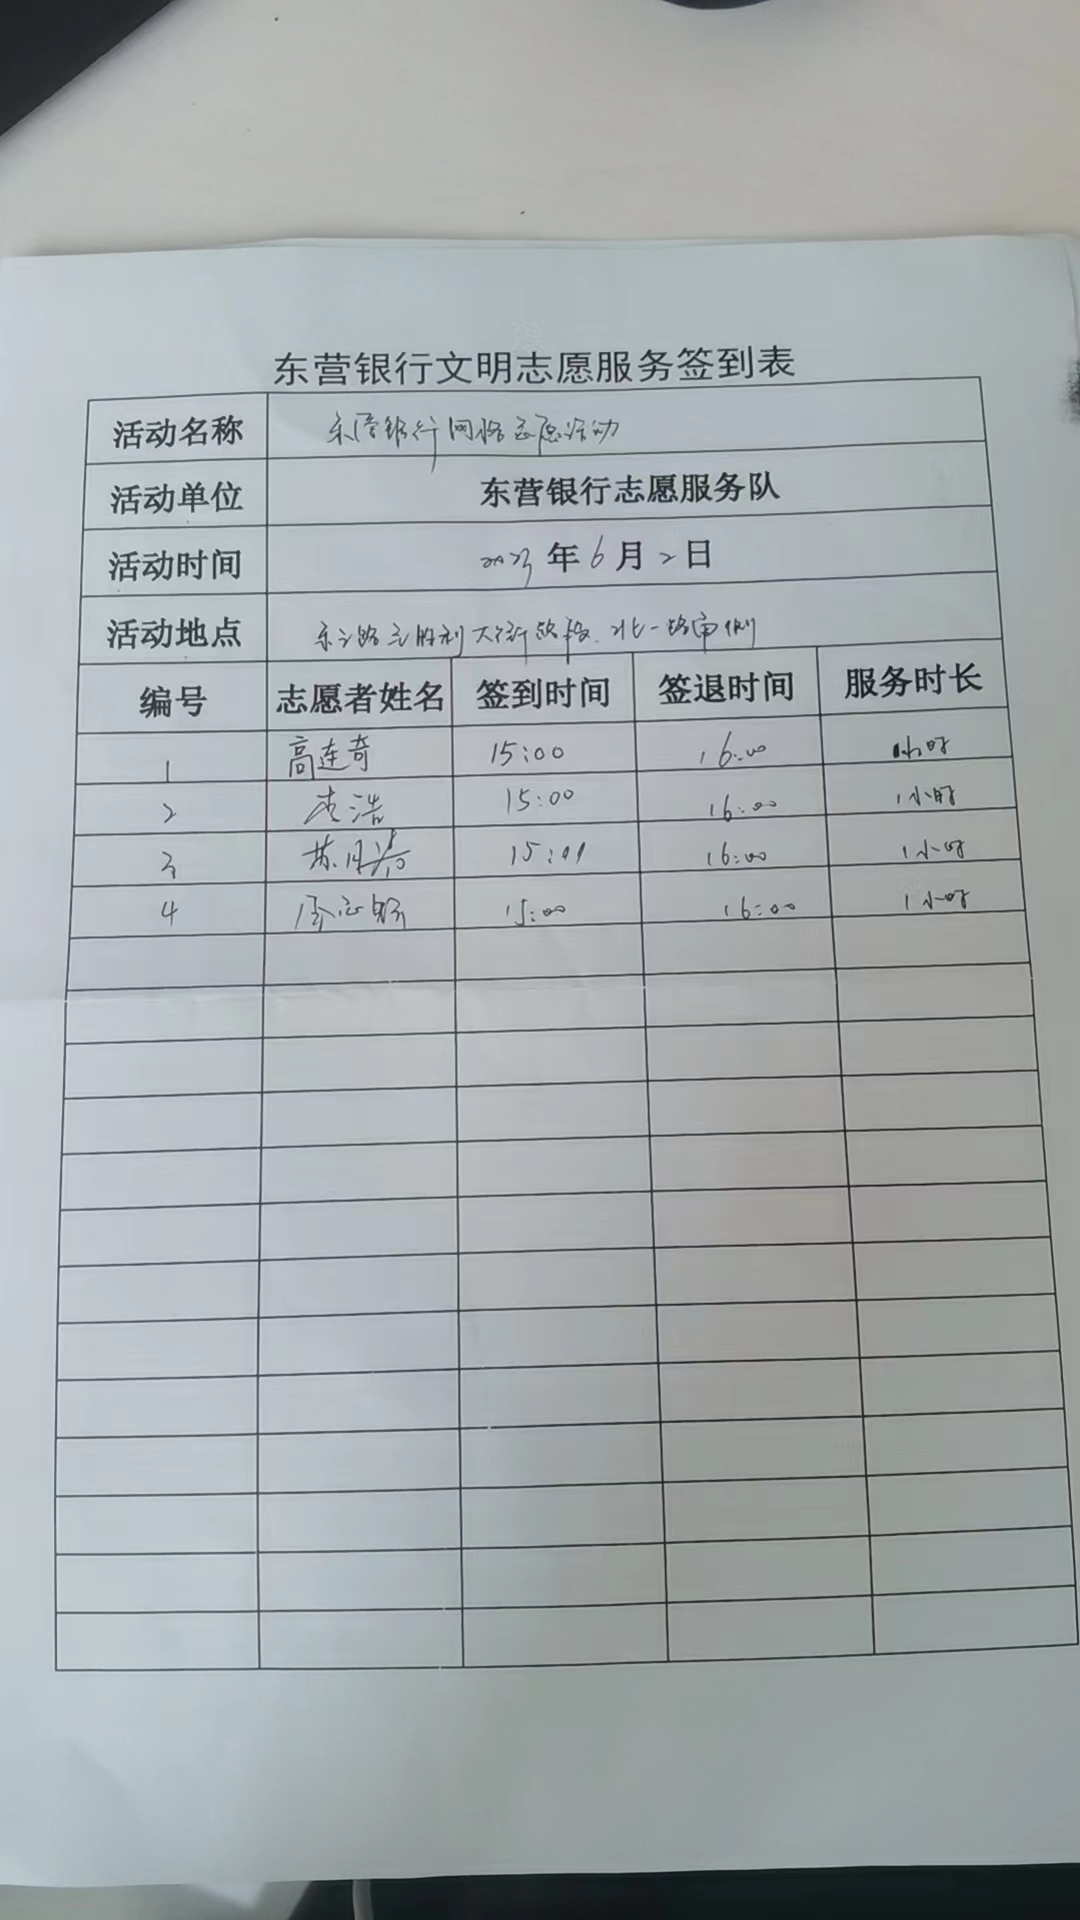 东营银行文明志愿服务签到表
活动名称 东营银行网格志愿活动
活动单位 东营银行志愿服务队
活动时间 2023年6月2日
活动地点 东三路至胜利大街路段、北一路南侧
编号 志愿者姓名 签到时间 签退时间 服务时长
1 高连奇 15:00 16:00 1小时
2 李浩 15:00 16:00 1小时
3 15:01 16:00 1小时
4 15:00 16:00 1小时